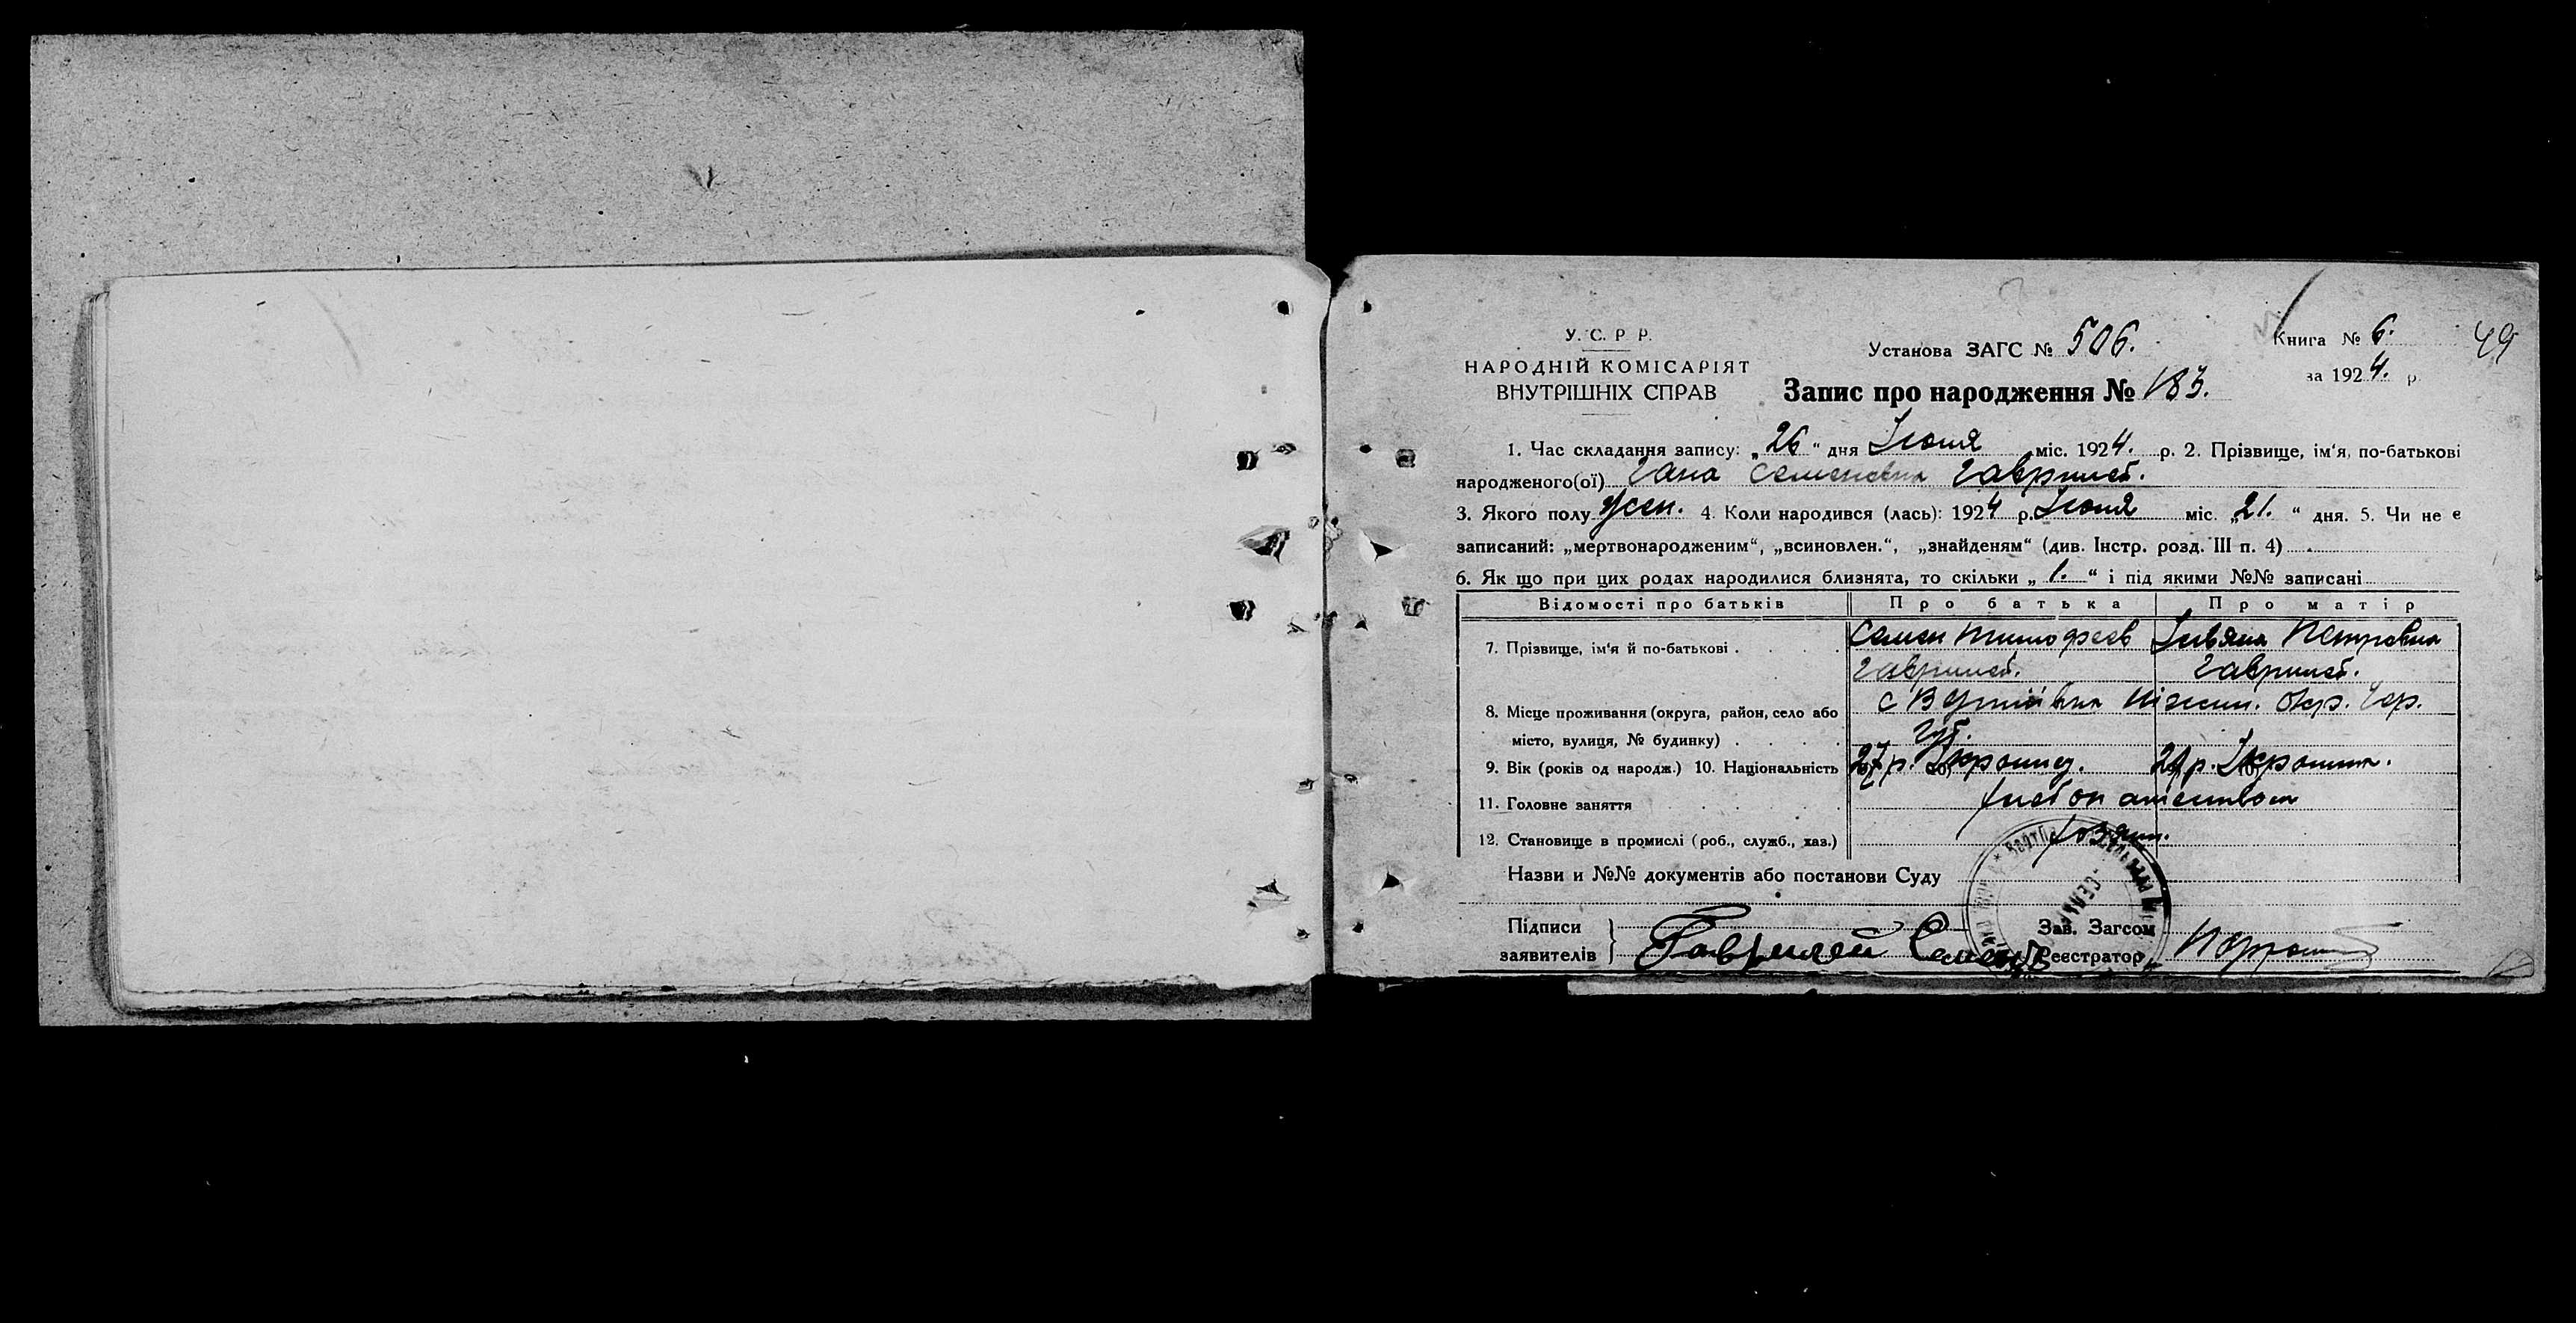 У. С. Р. Р.
НАРОДНІЙ КОМІСАРІЯТ
ВНУТРІШНІХ СПРАВ
Установа ЗАГС № 506.
Книга № 6.
49
за 1924. р.
Запис про народження № 183.
1. Час складання запису: „26“ дня Июня міс. 1924. р. 2. Прізвище, ім'я, по-батькові
народженого(ої) Гана Семеновна Гаврилей.
3. Якого полу жен. 4. Коли народився (лась): 1924 р. Июня міс. „21.“ дня. 5. Чи не є
записаний: „мертвонародженим“, „всиновлен.“, „знайденям“ (див. Інстр. розд. III п. 4)
6. Як що при цих родах народилися близнята, то скільки „1.“ і під якими №№ записані
Відомості про батьків Про батька Про матір
7. Прізвище, ім'я й по-батькові Семен Тимофеев Петровна
Гаврилей. Гаврилей.
8. Місце проживання (округа, район, село або с Вертіївка Ніжин. Окр. Чер.
місто, вулиця, № будинку) Губ.
9. Вік (років од народж.) 10. Національність 27 р. р.
11. Головне заняття
12. Становище в промислі (роб., служб., хаз.) Хозяин.
Назви и №№ документів або постанови Суду
Підписи
заявителів Гаврилей Семен
Зав. Загсом
Реєстратор